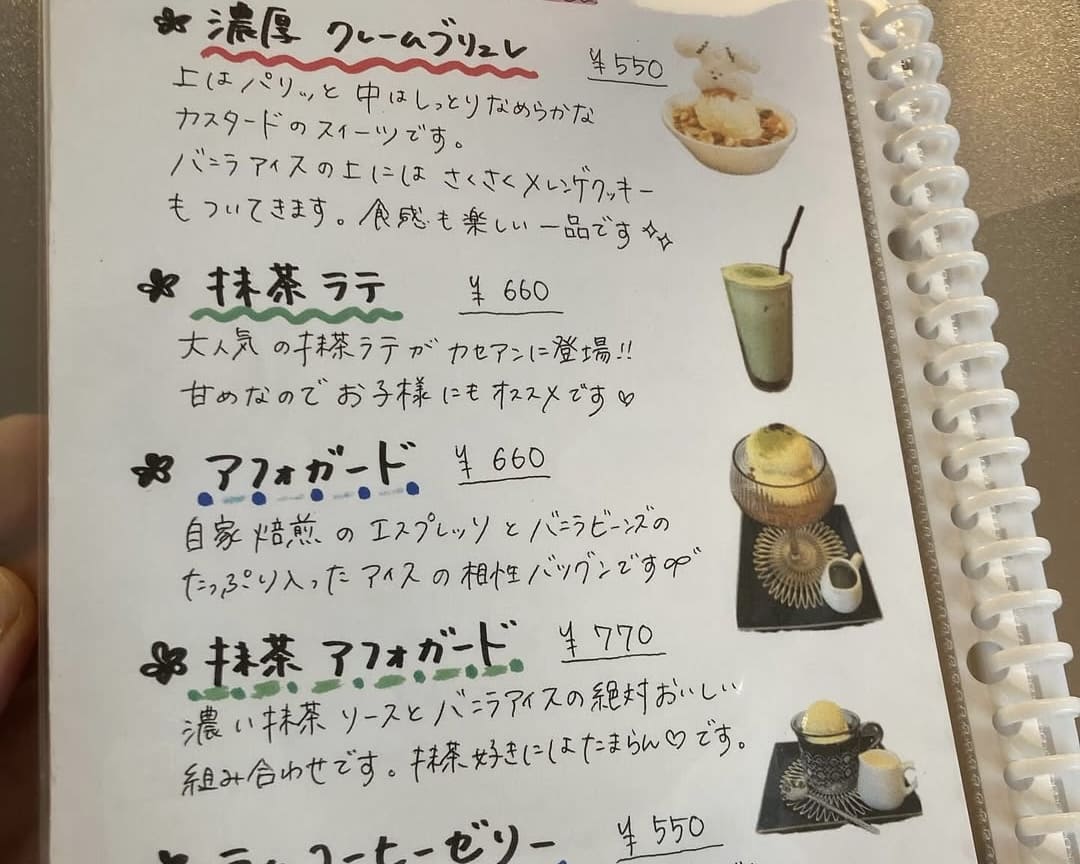 濃厚 クレームブリュレ ¥550
上はパリッと 中はしっとりなめらかな
カスタードのスイーツです。
バニラアイスの上には さくさくメレンゲクッキー
もついてきます。食感も楽しい一品です
抹茶ラテ ¥660
大人気の抹茶ラテがカセアンに登場!!
甘めなのでお子様にもオススメです♡
アフォガード ¥660
自家焙煎のエスプレッソとバニラビーンズの
たっぷり入ったアイスの相性バツグンです
抹茶アフォガード ¥770
濃い抹茶ソースとバニラアイスの絶対おいしい
組み合わせです。抹茶好きにはたまらん♡です。
コーヒーゼリー ¥550